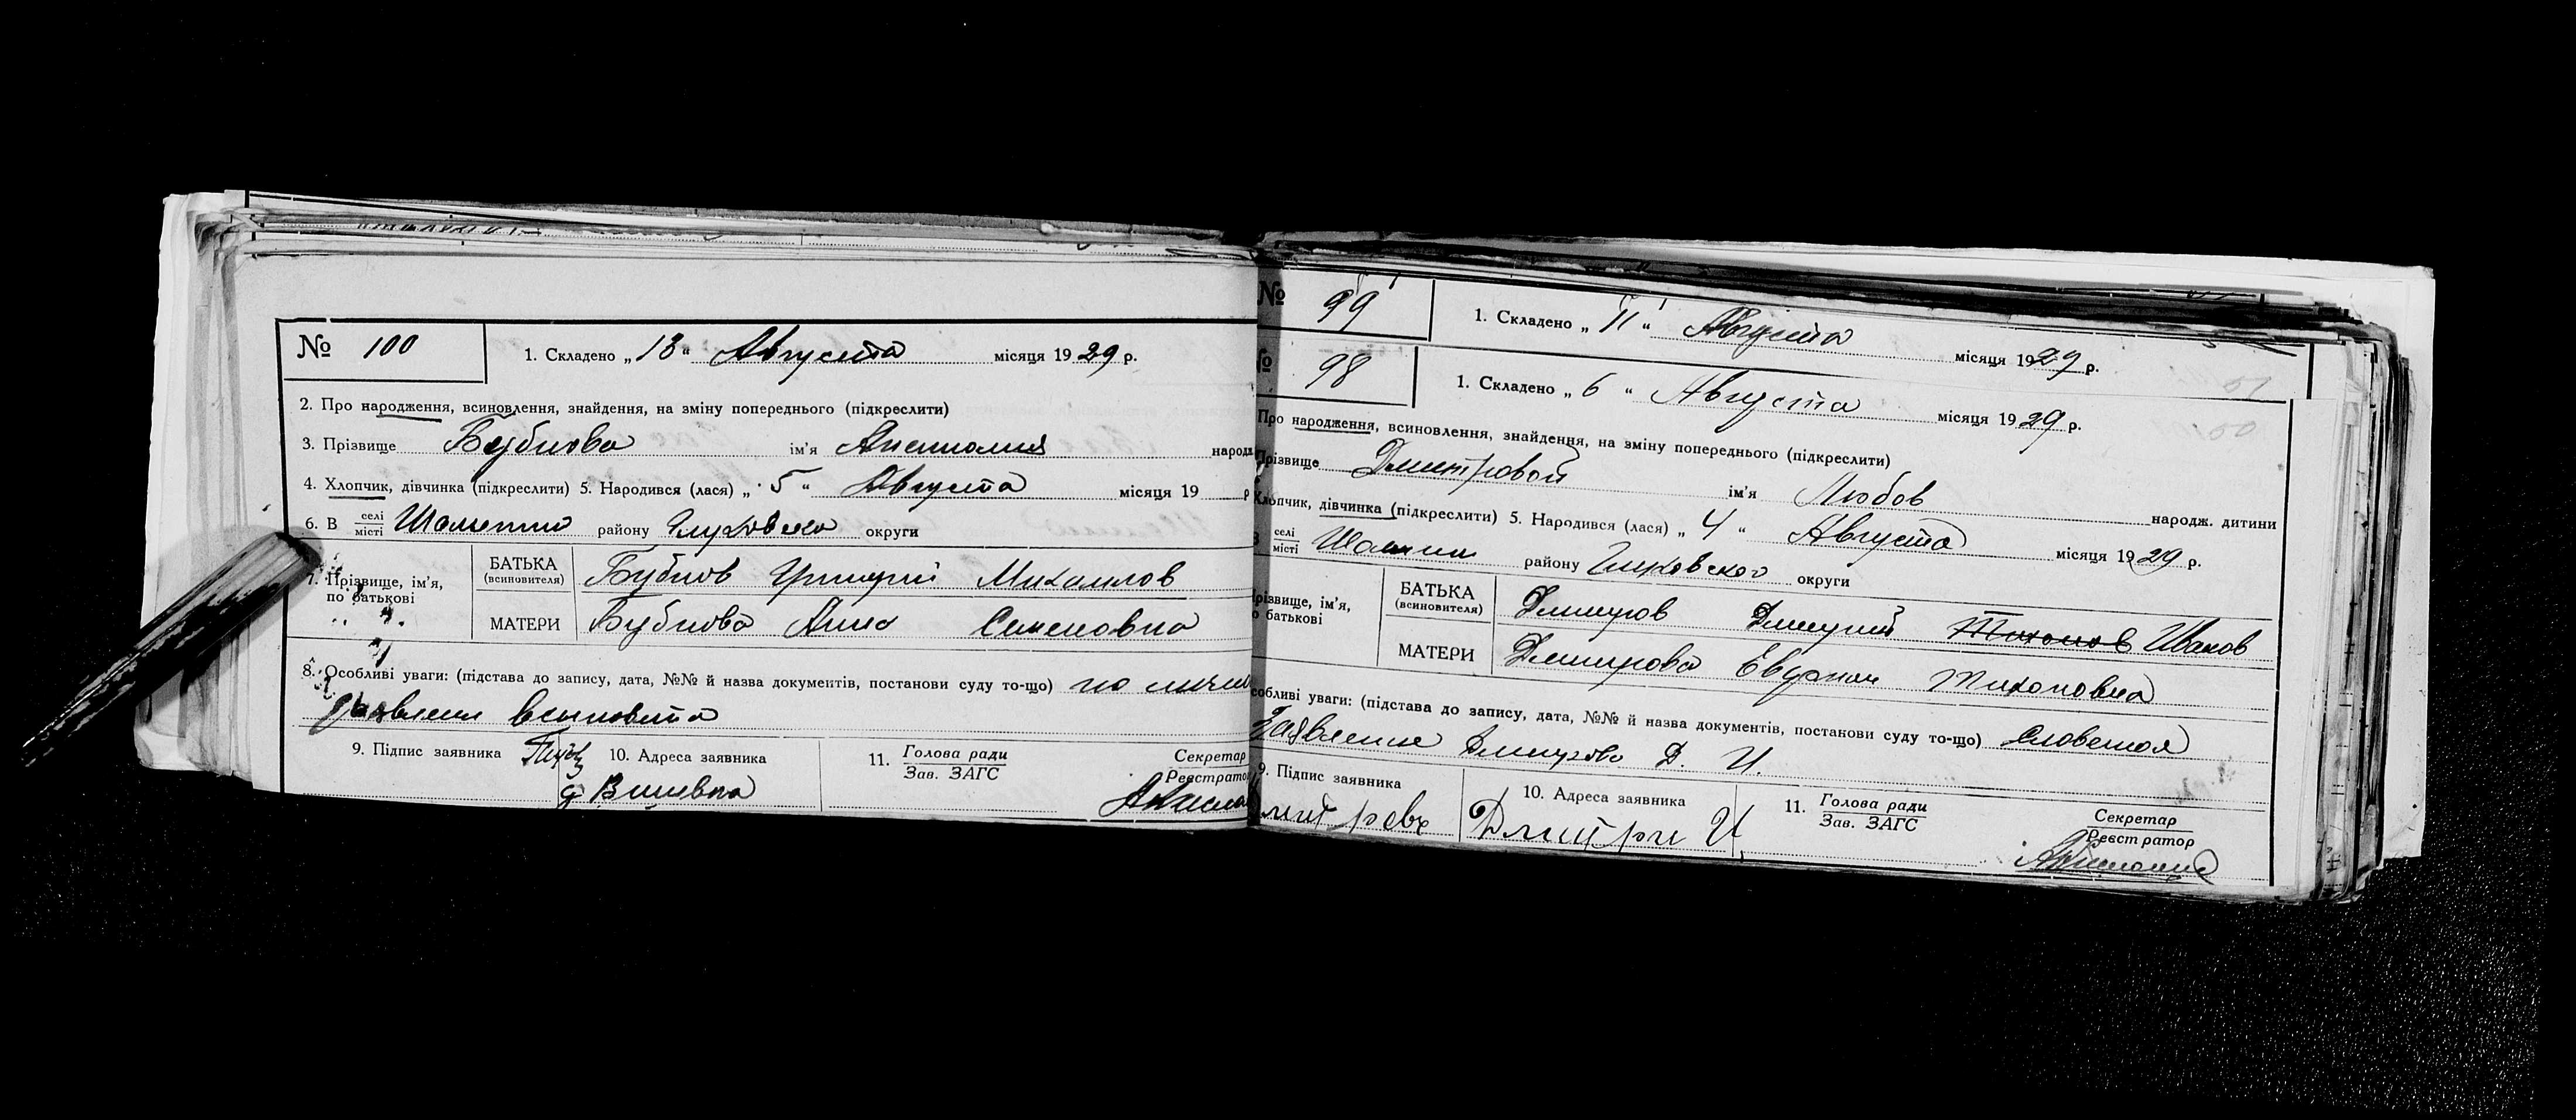 № 100
1. Складено „13“ Августа місяця 1929 р.
2. Про народження, всиновлення, знайдення, на зміну попереднього (підкреслити)
3. Прізвище Бубнова ім'я народ
4. Хлопчик, дівчинка (підкреслити) 5. Народився (лася) „5“ Августа місяця 19 р
6. В селі місті району округи
7. Прізвище, ім'я, по батькові
БАТЬКА (всиновителя) Бубнов Григорий Михаилов
МАТЕРИ Бубнова Анна Семеновна
8. Особливі уваги: (підстава до запису, дата, №№ й назва документів, постанови суду то-що) по
9. Підпис заявника 10. Адреса заявника
11. Голова ради
Зав. ЗАГС
Секретар
Реєстратор
№ 99
1. Складено „11“ Августа місяця 1929 р.
№ 98
1. Складено „6“ Августа місяця 1929 р.
Про народження, всиновлення, знайдення, на зміну попереднього (підкреслити)
Прізвище Дмитровой ім'я Любов народж. дитини
Хлопчик, дівчинка (підкреслити) 5. Народився (лася) „4“ Августа місяця 1929 р.
В селі місті району округи
Прізвище, ім'я, по батькові
БАТЬКА (всиновителя) Дмитров Дмитрий Тихонов Иванов
МАТЕРИ Дмитрова Тихоновна
собливі уваги: (підстава до запису, дата, №№ й назва документів, постанови суду то-що) словесное
Заявление Дмитрова Д. И.
9. Підпис заявника
10. Адреса заявника
Дмитри И
11. Голова ради
Зав. ЗАГС
Секретар
Реєстратор